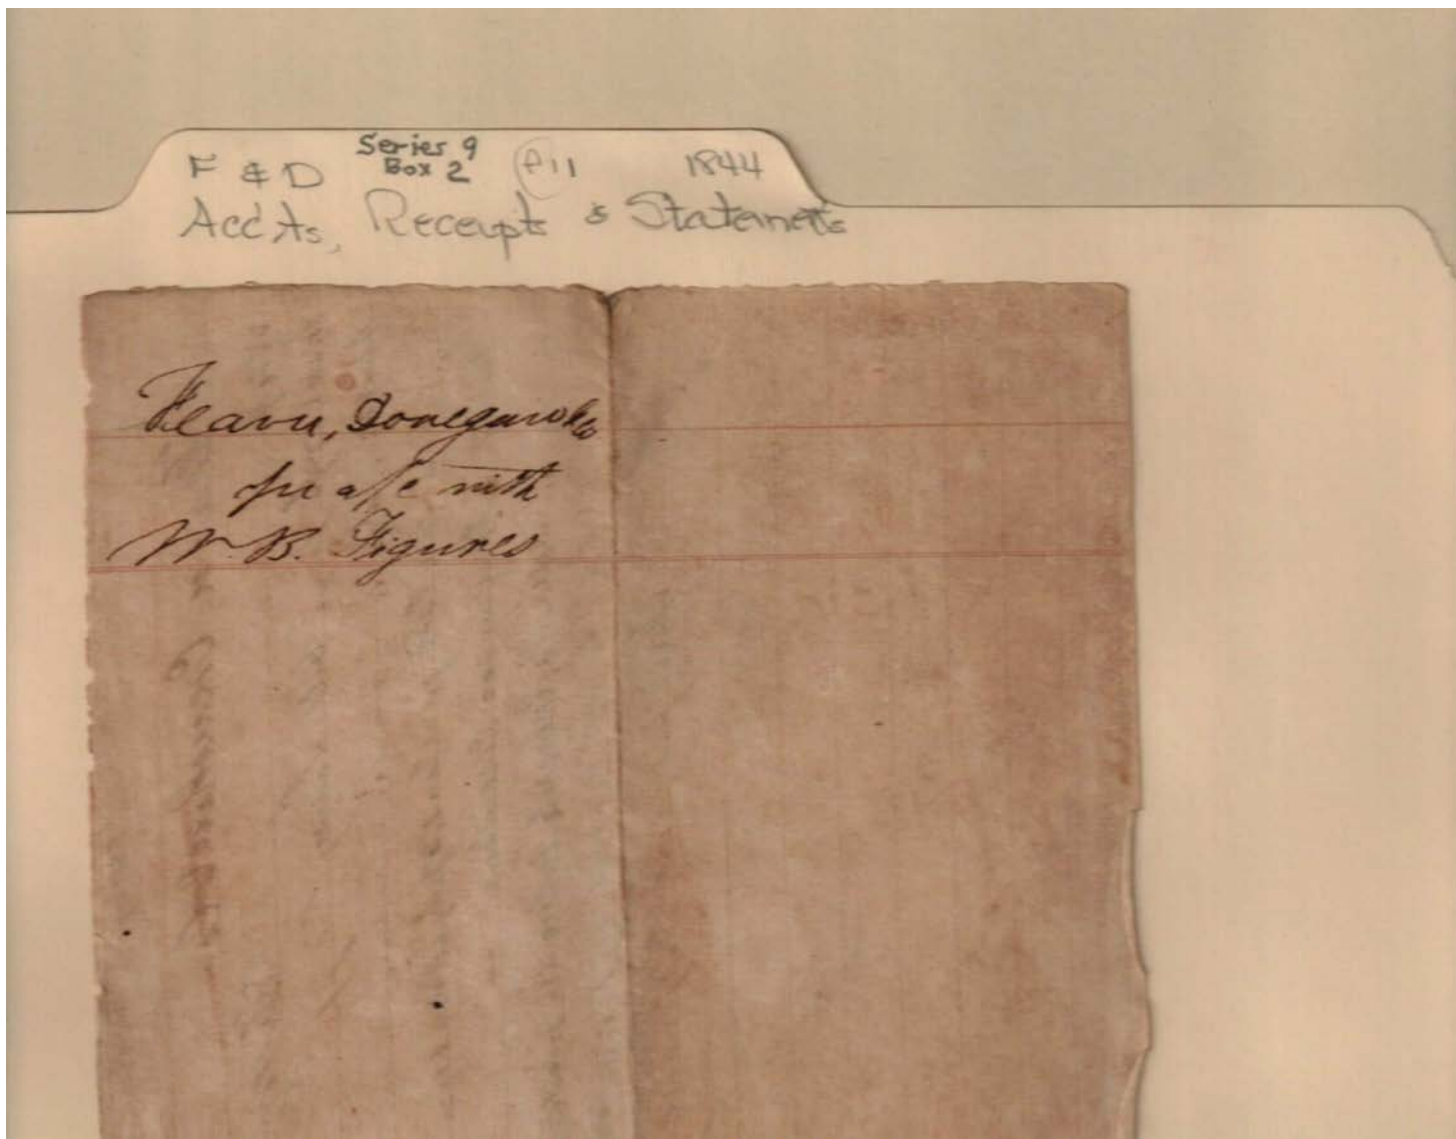 Series 9
F & D Box 2 P11 1844
Acc'ts, Receipts & Statements
Fearn, Donegan & Co
in a/c with
W. B. Figures